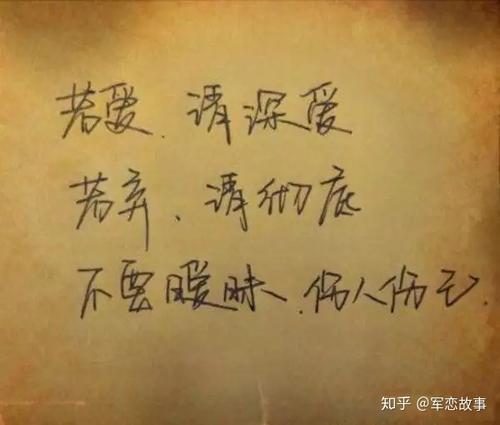 若爱、请深爱
若弃、请彻底
不要暧昧、伤人伤己.
知乎 @军恋故事